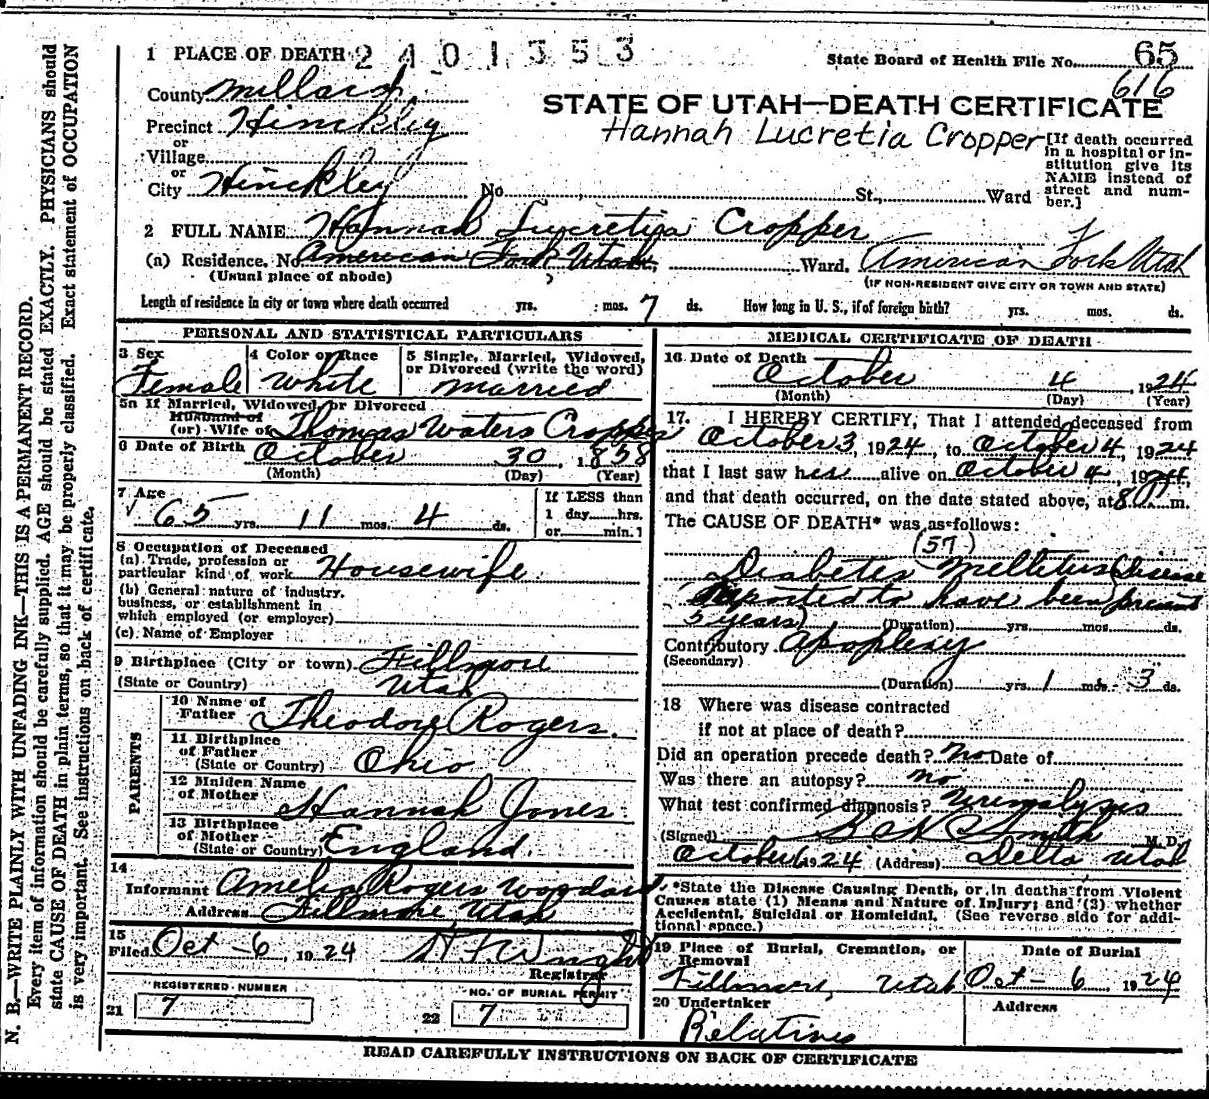 1 PLACE OF DEATH 2401353
State Board of Health File No. 65
616
County Millard
STATE OF UTAH—DEATH CERTIFICATE
Hannah Lucretia Cropper
Precinct Hinckley
or
Village
or
City Hinckley No. St., Ward
[If death occurred
in a hospital or in-
stitution give its
NAME instead of
street and num-
ber.]
2 FULL NAME Hannah Lucretia Cropper
(a) Residence. No. American Fork Utah, Ward. American Fork Utah
(Usual place of abode) (IF NON-RESIDENT GIVE CITY OR TOWN AND STATE)
Length of residence in city or town where death occurred yrs. mos. 7 ds. How long in U. S., if of foreign birth? yrs. mos. ds.
PERSONAL AND STATISTICAL PARTICULARS
3 Sex
Female
4 Color or Race
White
5 Single, Married, Widowed,
or Divorced (write the word)
Married
5a If Married, Widowed, or Divorced
Husband of
(or) Wife of Thomas Waters Cropper
6 Date of Birth October 30, 1858
(Month) (Day) (Year)
7 Age
65 yrs. 11 mos. 4 ds.
If LESS than
1 day hrs.
or min.?
8 Occupation of Deceased
(a) Trade, profession or
particular kind of work Housewife
(b) General nature of industry,
business, or establishment in
which employed (or employer)
(c) Name of Employer
9 Birthplace (City or town) Fillmore
(State or Country) Utah
PARENTS
10 Name of
Father Theodore Rogers.
11 Birthplace
of Father
(State or Country) Ohio
12 Maiden Name
of Mother Hannah Jones
13 Birthplace
of Mother
(State or Country) England
14
Informant Amelia Rogers Woodard
Address Fillmore Utah
15
Filed Oct - 6, 1924 Wright
Registrar
REGISTERED NUMBER
21 7
NO. OF BURIAL PERMIT
22 7
MEDICAL CERTIFICATE OF DEATH
16 Date of Death
October 4, 1924
(Month) (Day) (Year)
17. I HEREBY CERTIFY, That I attended deceased from
October 3, 1924, to October 4, 1924
that I last saw her alive on October 4, 1924,
and that death occurred, on the date stated above, at 8 m.
The CAUSE OF DEATH* was as follows:
(57)
Diabetes Mellitus (disease
reported to have been present
5 years) (Duration) yrs. mos. ds.
Contributory Apoplexy
(Secondary)
(Duration) yrs. 1 mos. 3 ds.
18 Where was disease contracted
if not at place of death?
Did an operation precede death? No Date of
Was there an autopsy? no
What test confirmed diagnosis? Urinalysis
(Signed) Smith M.D.
October 6, 1924 (Address) Delta Utah
*State the Disease Causing Death, or in deaths from Violent
Causes state (1) Means and Nature of Injury; and (2) whether
Accidental, Suicidal or Homicidal. (See reverse side for addi-
tional space.)
19 Place of Burial, Cremation, or
Removal
Fillmore, Utah
Date of Burial
Oct - 6, 1924
20 Undertaker
Relatives
Address
READ CAREFULLY INSTRUCTIONS ON BACK OF CERTIFICATE
N. B.—WRITE PLAINLY WITH UNFADING INK—THIS IS A PERMANENT RECORD.
Every item of information should be carefully supplied. AGE should be stated EXACTLY. PHYSICIANS should
state CAUSE OF DEATH in plain terms, so that it may be properly classified. Exact statement of OCCUPATION
is very important. See instructions on back of certificate.